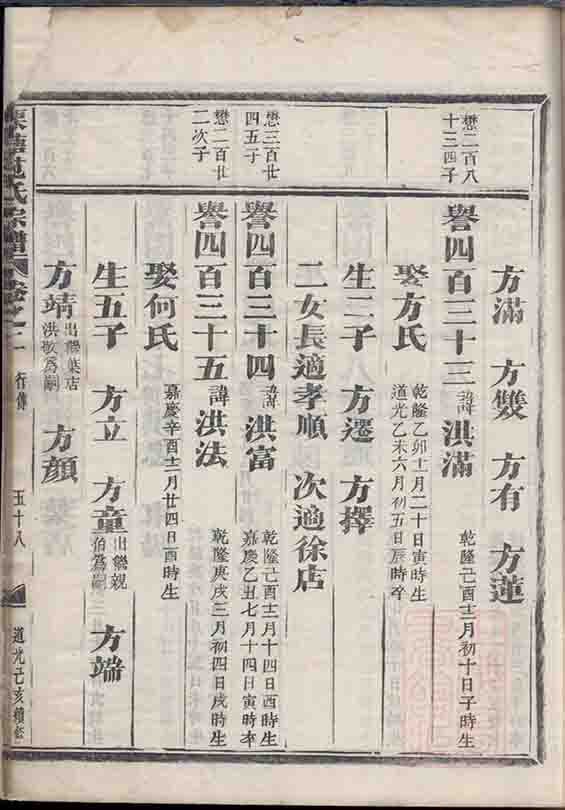 方滿 方雙 方有 方蓮
懋二百八十三四子
譽四百三十三 諱洪滿 乾隆己酉十二月初十日子時生
娶方氏 乾隆乙卯十一月二十日寅時生
道光乙未六月初五日辰時卒
生二子 方遷 方擇
二女長適孝順 次適徐店
懋三百廿四五子
譽四百三十四 諱洪富 乾隆己酉十二月十四日酉時生
嘉慶乙丑七月十四日寅時卒
懋二百廿二次子
譽四百三十五 諱洪法 乾隆庚戌三月初四日戌時生
娶何氏 嘉慶辛酉十二月廿四日酉時生
生五子 方立 方童 出繼親伯爲嗣 方端
方靖 出繼葉店洪敬爲嗣 方顏
氏宗譜 卷之二 行傳 五十八 道光己亥續修